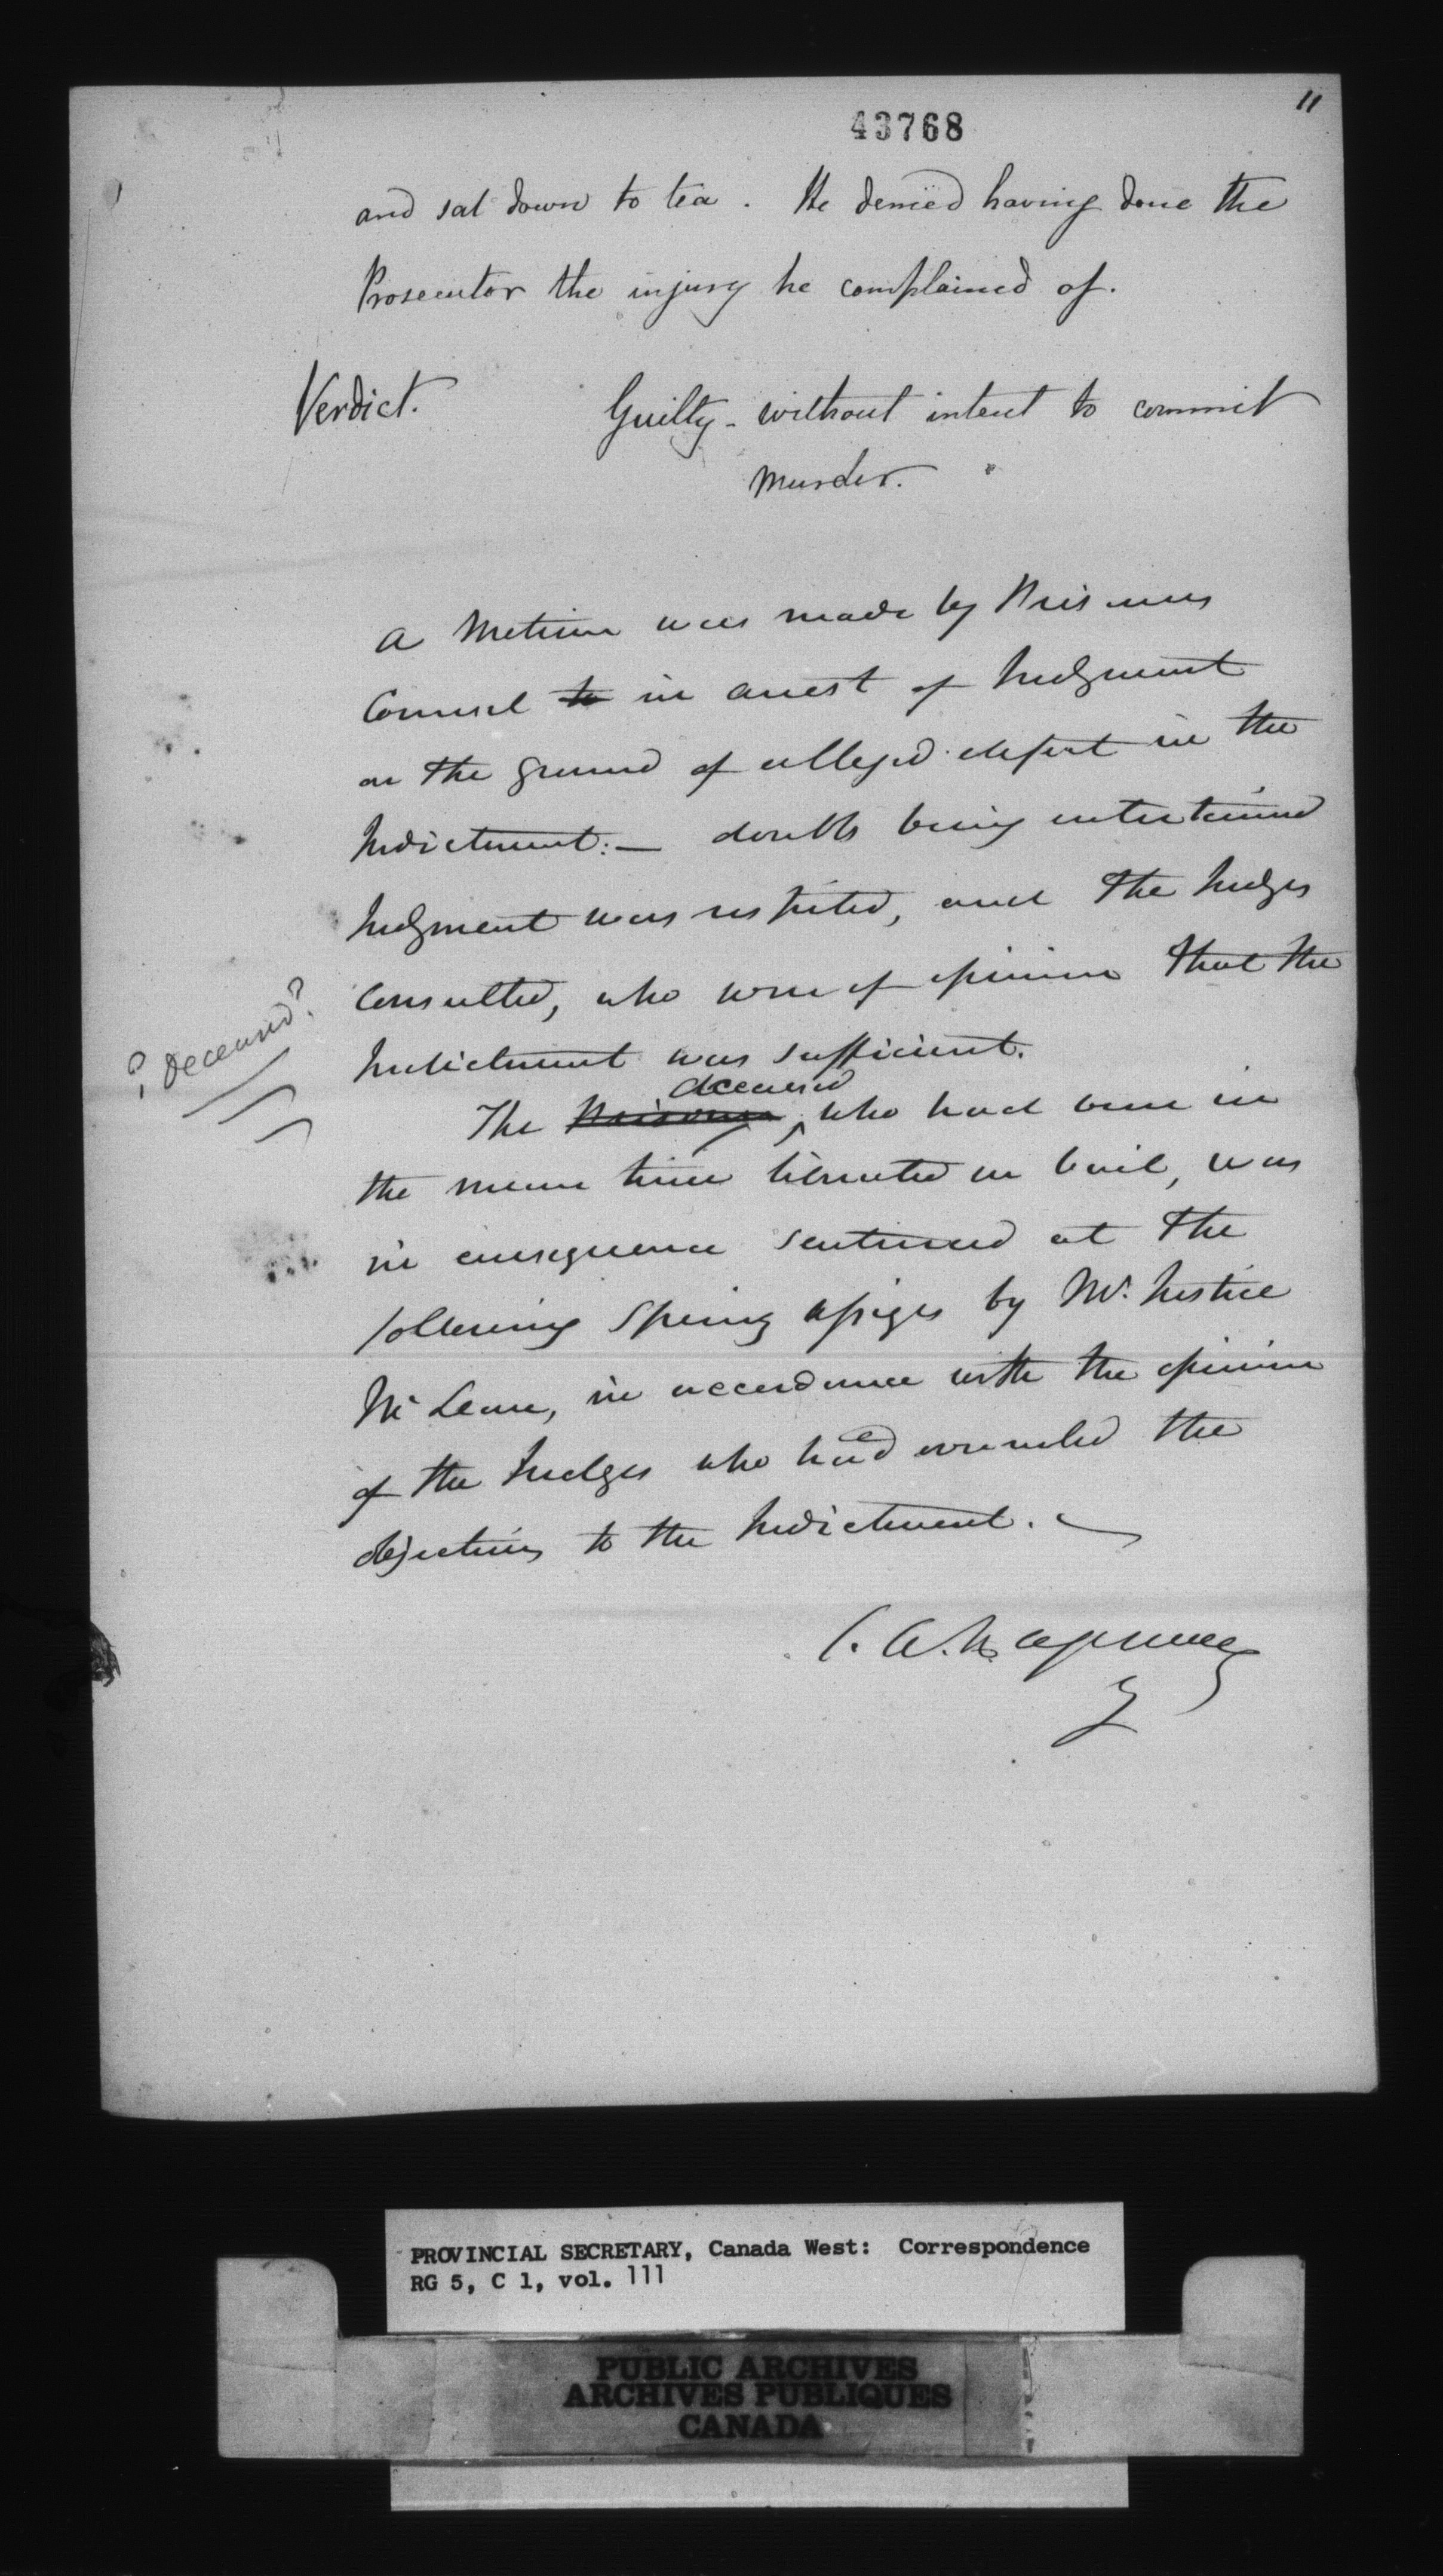 11
43768
and sat down to tea. He denied having done the
Prosecutor the injury he complained of.
Verdict. Guilty - without intent to commit
murder.
A Motion was made by Prisoners
Counsel to in arrest of Judgment
on the ground of alleged defect in the
Indictment:— doubts being entertained
Judgment was respited, and the Judges
consulted, who were of opinion that the
Indictment was sufficient.
? Deceased?
deceased
The Prisoner, who had been in
the mean time liberated on bail, was
in consequence sentenced at the
following Spring Assizes by Mr. Justice
McLean, in accordance with the opinion
of the Judges who had overruled the
objections to the Indictment.
PROVINCIAL SECRETARY, Canada West: Correspondence
RG 5, C 1, vol. 111
PUBLIC ARCHIVES
ARCHIVES PUBLIQUES
CANADA